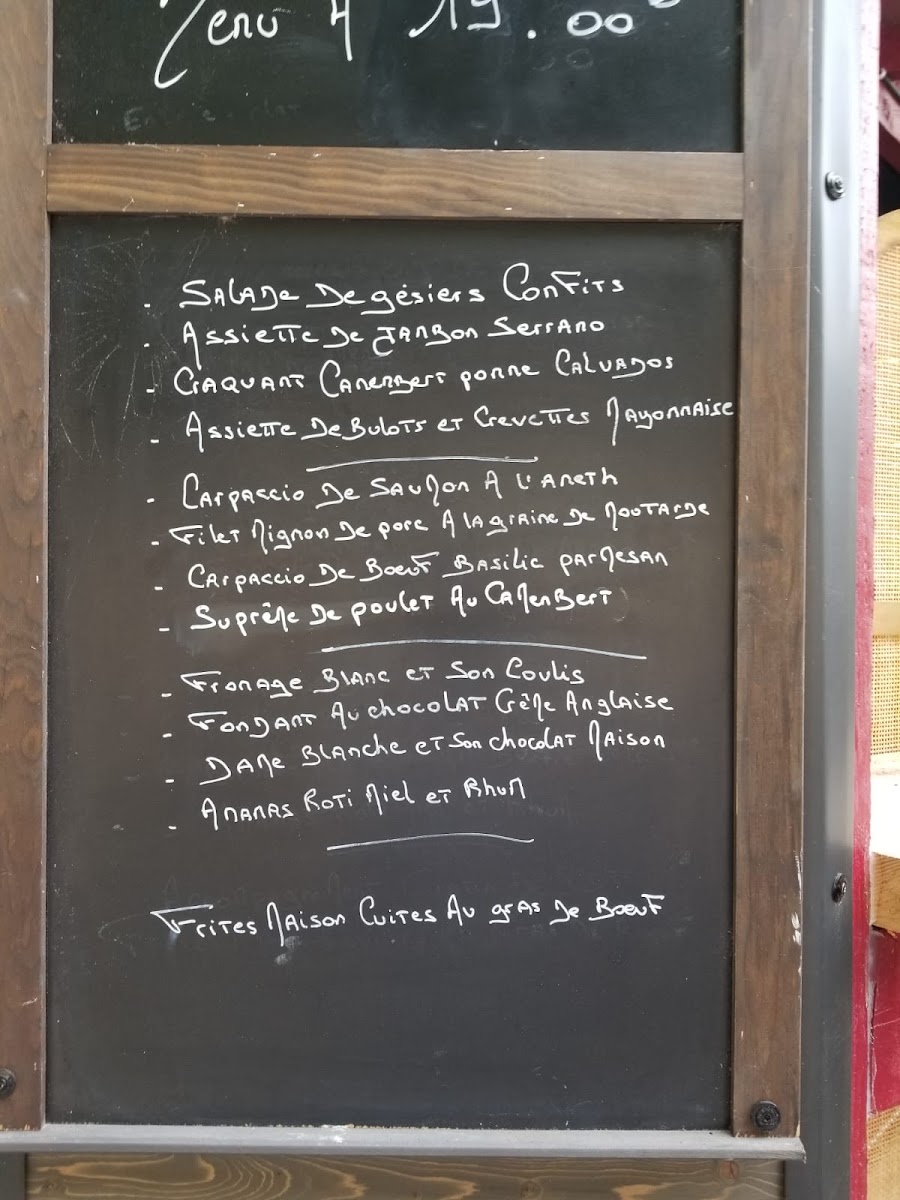 Menu A 19.00€
- Salade de gésiers confits
- Assiette de jambon Serrano
- Craquant Camembert pomme Calvados
- Assiette de bulots et crevettes mayonnaise
- Carpaccio de saumon à l'aneth
- Filet mignon de porc à la graine de moutarde
- Carpaccio de bœuf basilic parmesan
- Suprême de poulet au Camembert
- Fromage blanc et son coulis
- Fondant au chocolat crème anglaise
- Dame blanche et son chocolat maison
- Ananas roti miel et rhum
Frites maison cuites au gras de bœuf